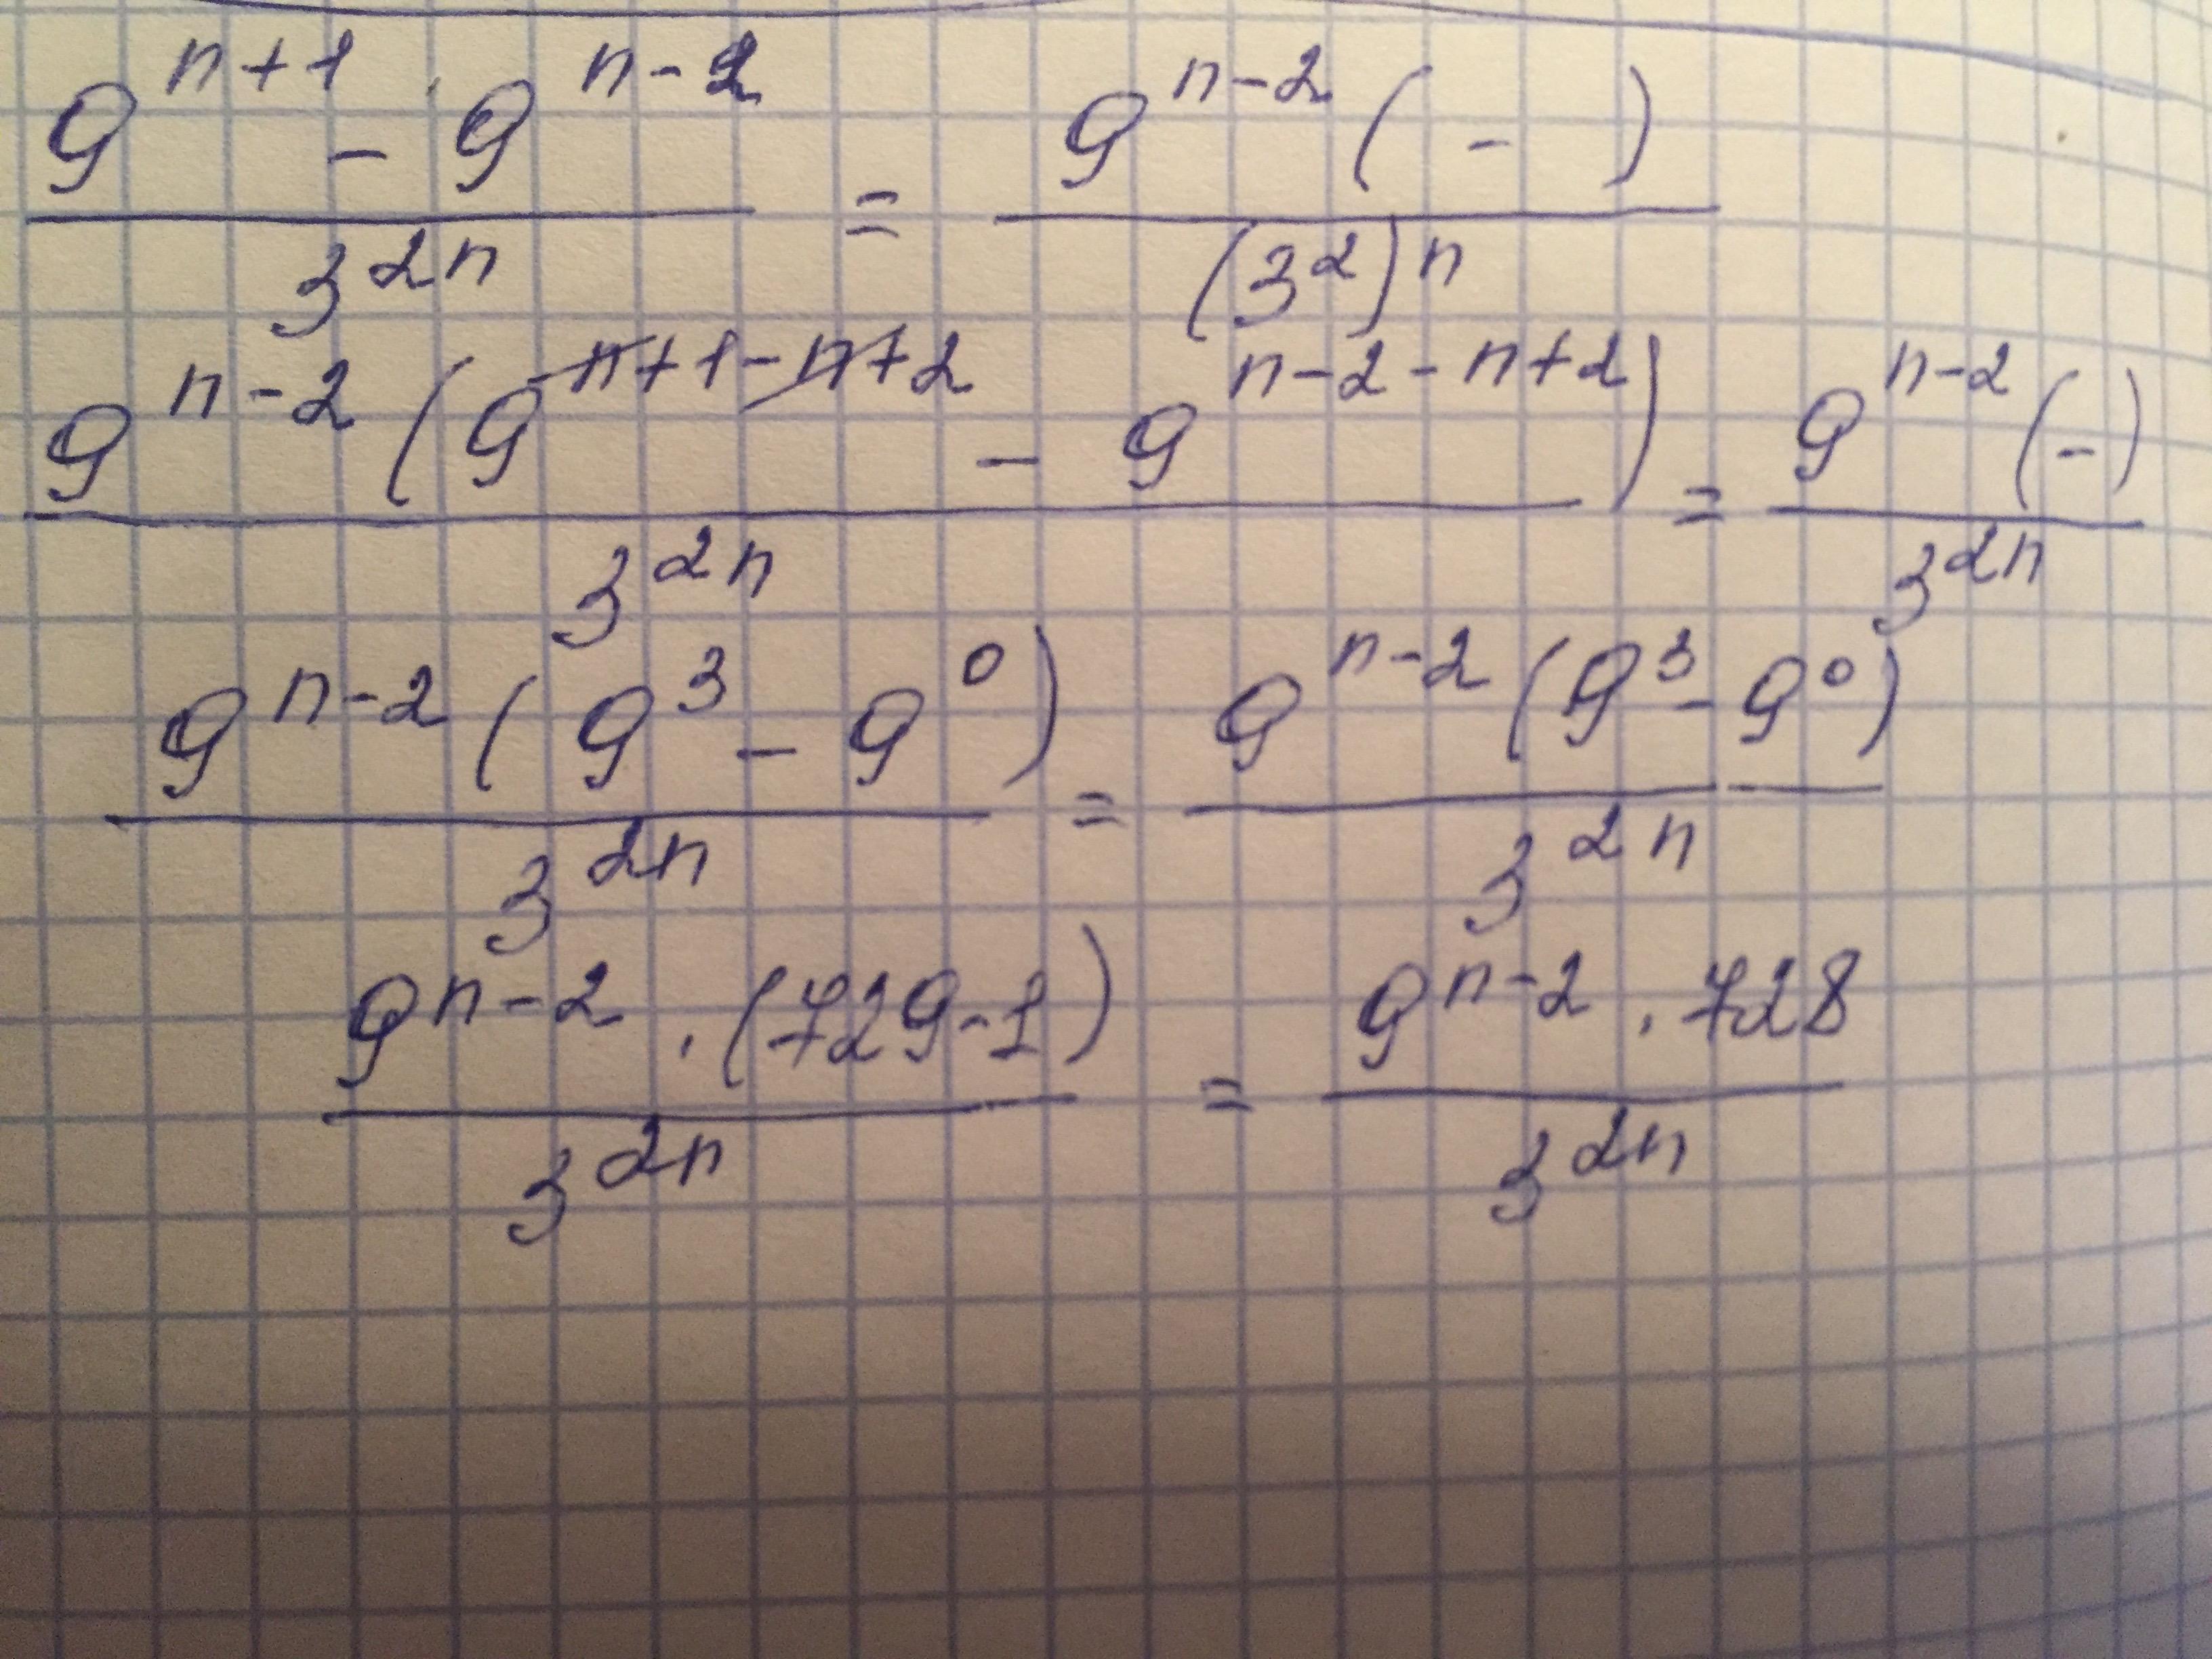 9^{n+1} - 9^{n-2} / 3^{2n} = 9^{n-2} ( - ) / (3^2)^n
9^{n-2} (9^{n+1-n+2} - 9^{n-2-n+2}) / 3^{2n} = 9^{n-2} (-) / 3^{2n}
9^{n-2} (9^3 - 9^0) / 3^{2n} = 9^{n-2} (9^3 - 9^0) / 3^{2n}
9^{n-2} · (729-1) / 3^{2n} = 9^{n-2} · 728 / 3^{2n}